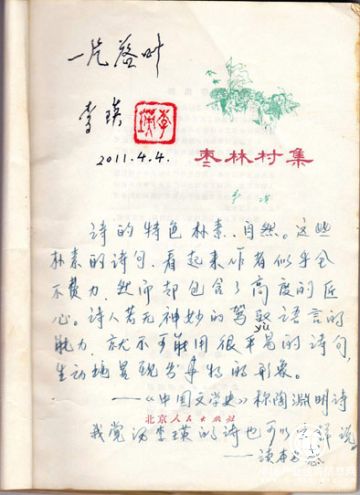 一片落叶
李瑛
李瑛
2011.4.4.
枣林村集
诗的特色朴素、自然。这些
朴素的诗句，看起来作者似乎全
不费力，然而却包含了高度的匠
心。诗人若无神妙的驾驭语言的
yù
能力，就不可能用很平易的诗句，
生动地呈现出事物的形象。
——《中国文学史》称陶渊明诗
北京人民出版社
我觉得李瑛的诗也可以这样说
——读本书